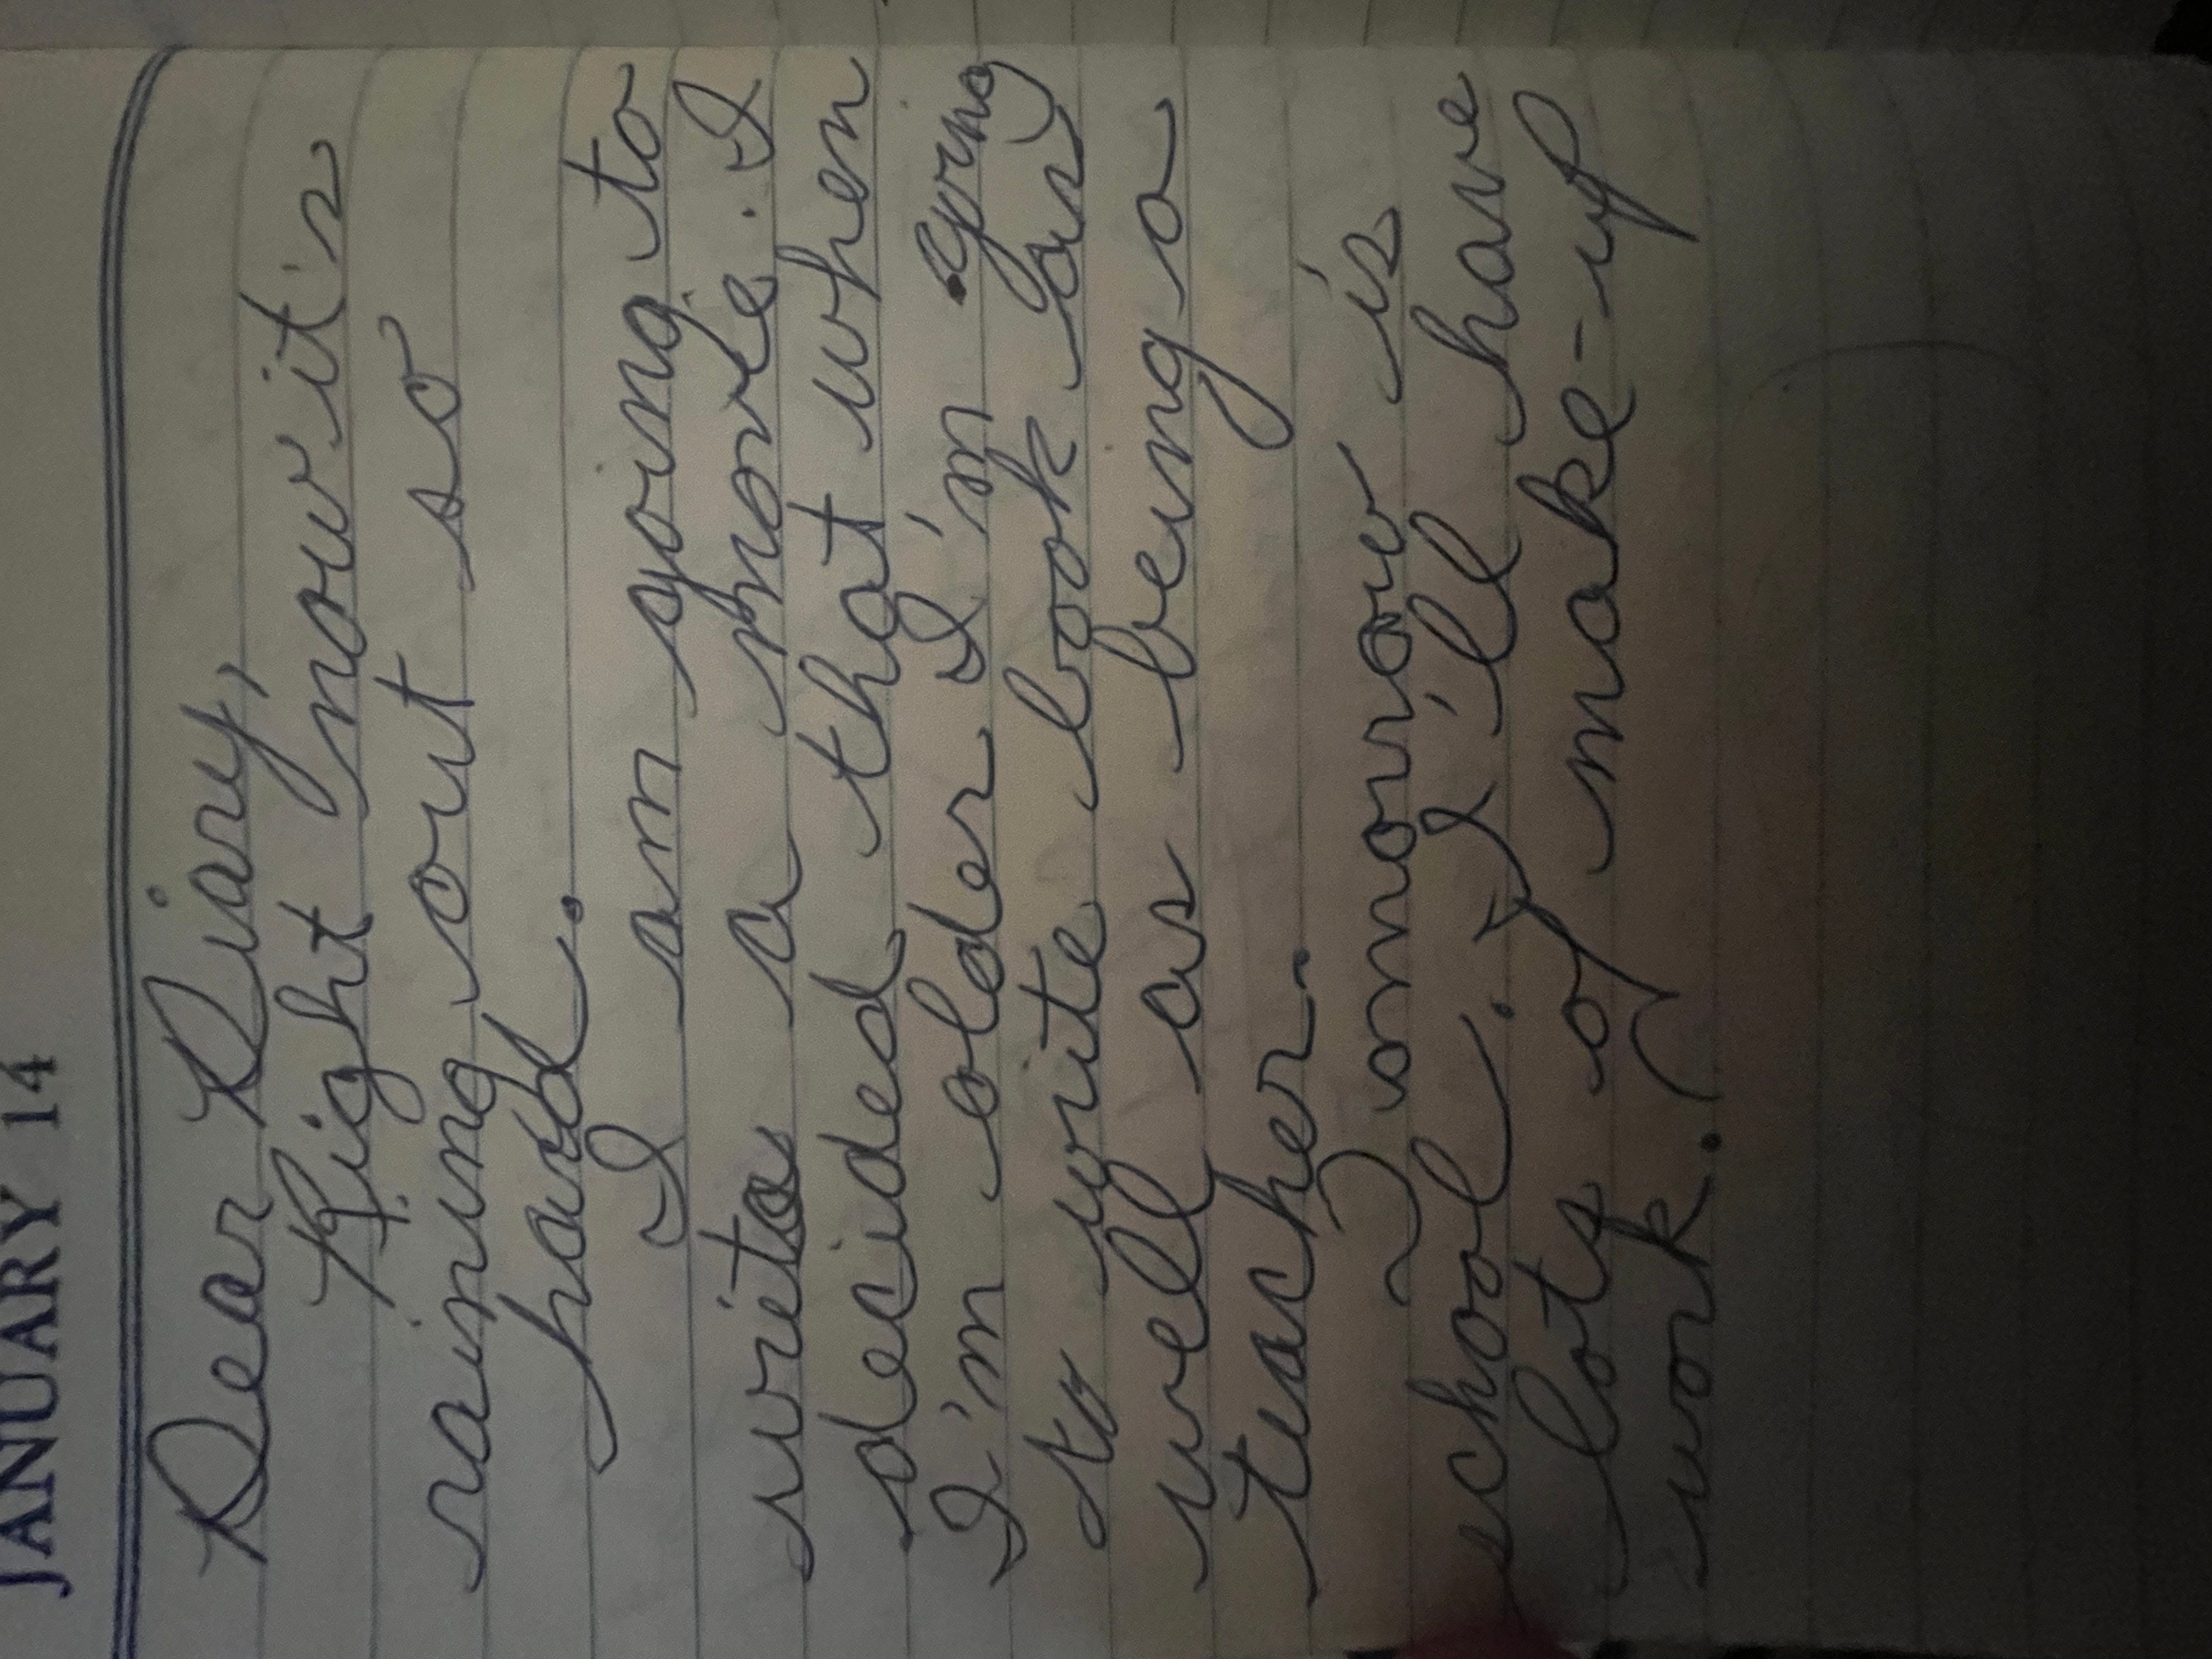 JANUARY 14
Dear Diary,
Right now it's
raining out so
hard.
I am going to
write a a novel. I
decided that when
I'm older I'm going
to write book as
well as being a
teacher.
Tomorrow is
school. I'll have
lots of make-up
work.